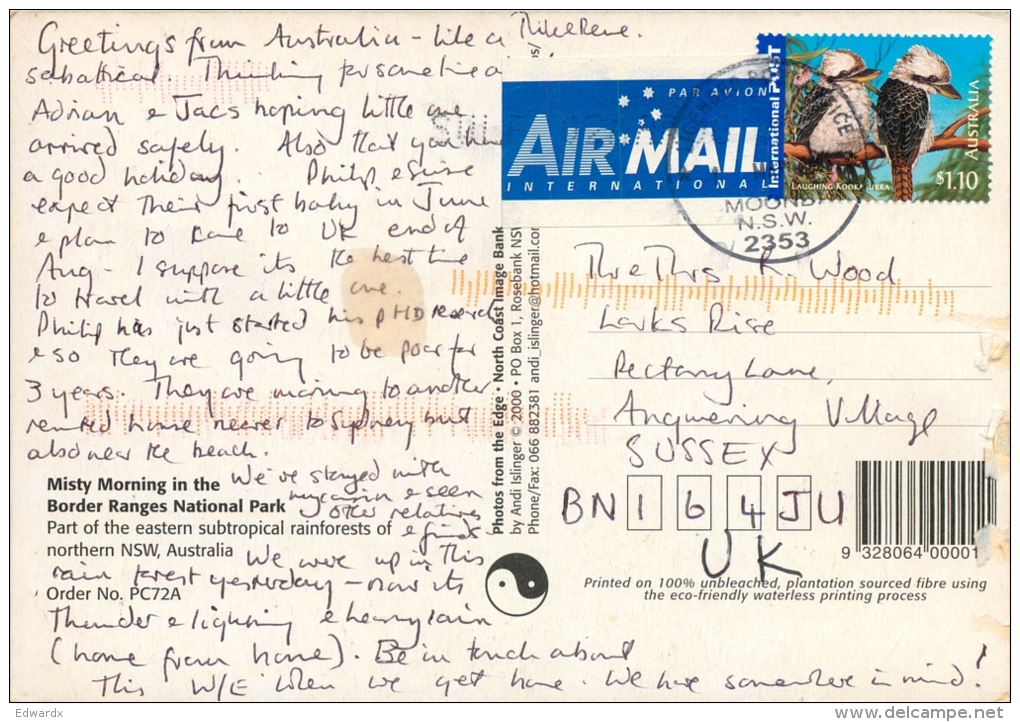 Greetings from Australia – like a Mike & Rene.
sabattical. Thinking for some time a
Adrian & Jacs hoping little one
arrived safely. Also that you have
a good holiday. Philip & Susie
expect their first baby in June
& plan to come to UK end of
Aug – I suppose its the best time
to travel with a little one.
Philip has just started his pHD research
& so they are going to be poor for
3 years. They are moving to another
rented house nearer to Sydney but
also near the beach.
We've stayed with
my cousin & seen
other relatives
& friends
We were up in this
rain forest yesterday – now its
Thunder & lightning & heavy rain
(home from home). Be in touch about
this W/E when we get home. We have somewhere in mind!
Misty Morning in the
Border Ranges National Park
Part of the eastern subtropical rainforests of
northern NSW, Australia
Order No. PC72A
Photos from the Edge • North Coast Image Bank
by Andi Islinger © 2000 • PO Box 1, Rosebank NSW
Phone/Fax: 066 882381 andi_islinger@hotmail.com
PAR AVION
AIR MAIL
INTERNATIONAL
International POST
LAUGHING KOOKABURRA
AUSTRALIA
$1.10
MOONBI
N.S.W.
2353
Mr & Mrs K. Wood
Larks Rise
Rectory Lane,
Angmering Village
SUSSEX
BN16 4JU
UK
9 328064 00001
Printed on 100% unbleached, plantation sourced fibre using
the eco-friendly waterless printing process
Edwardx
www.delcampe.net